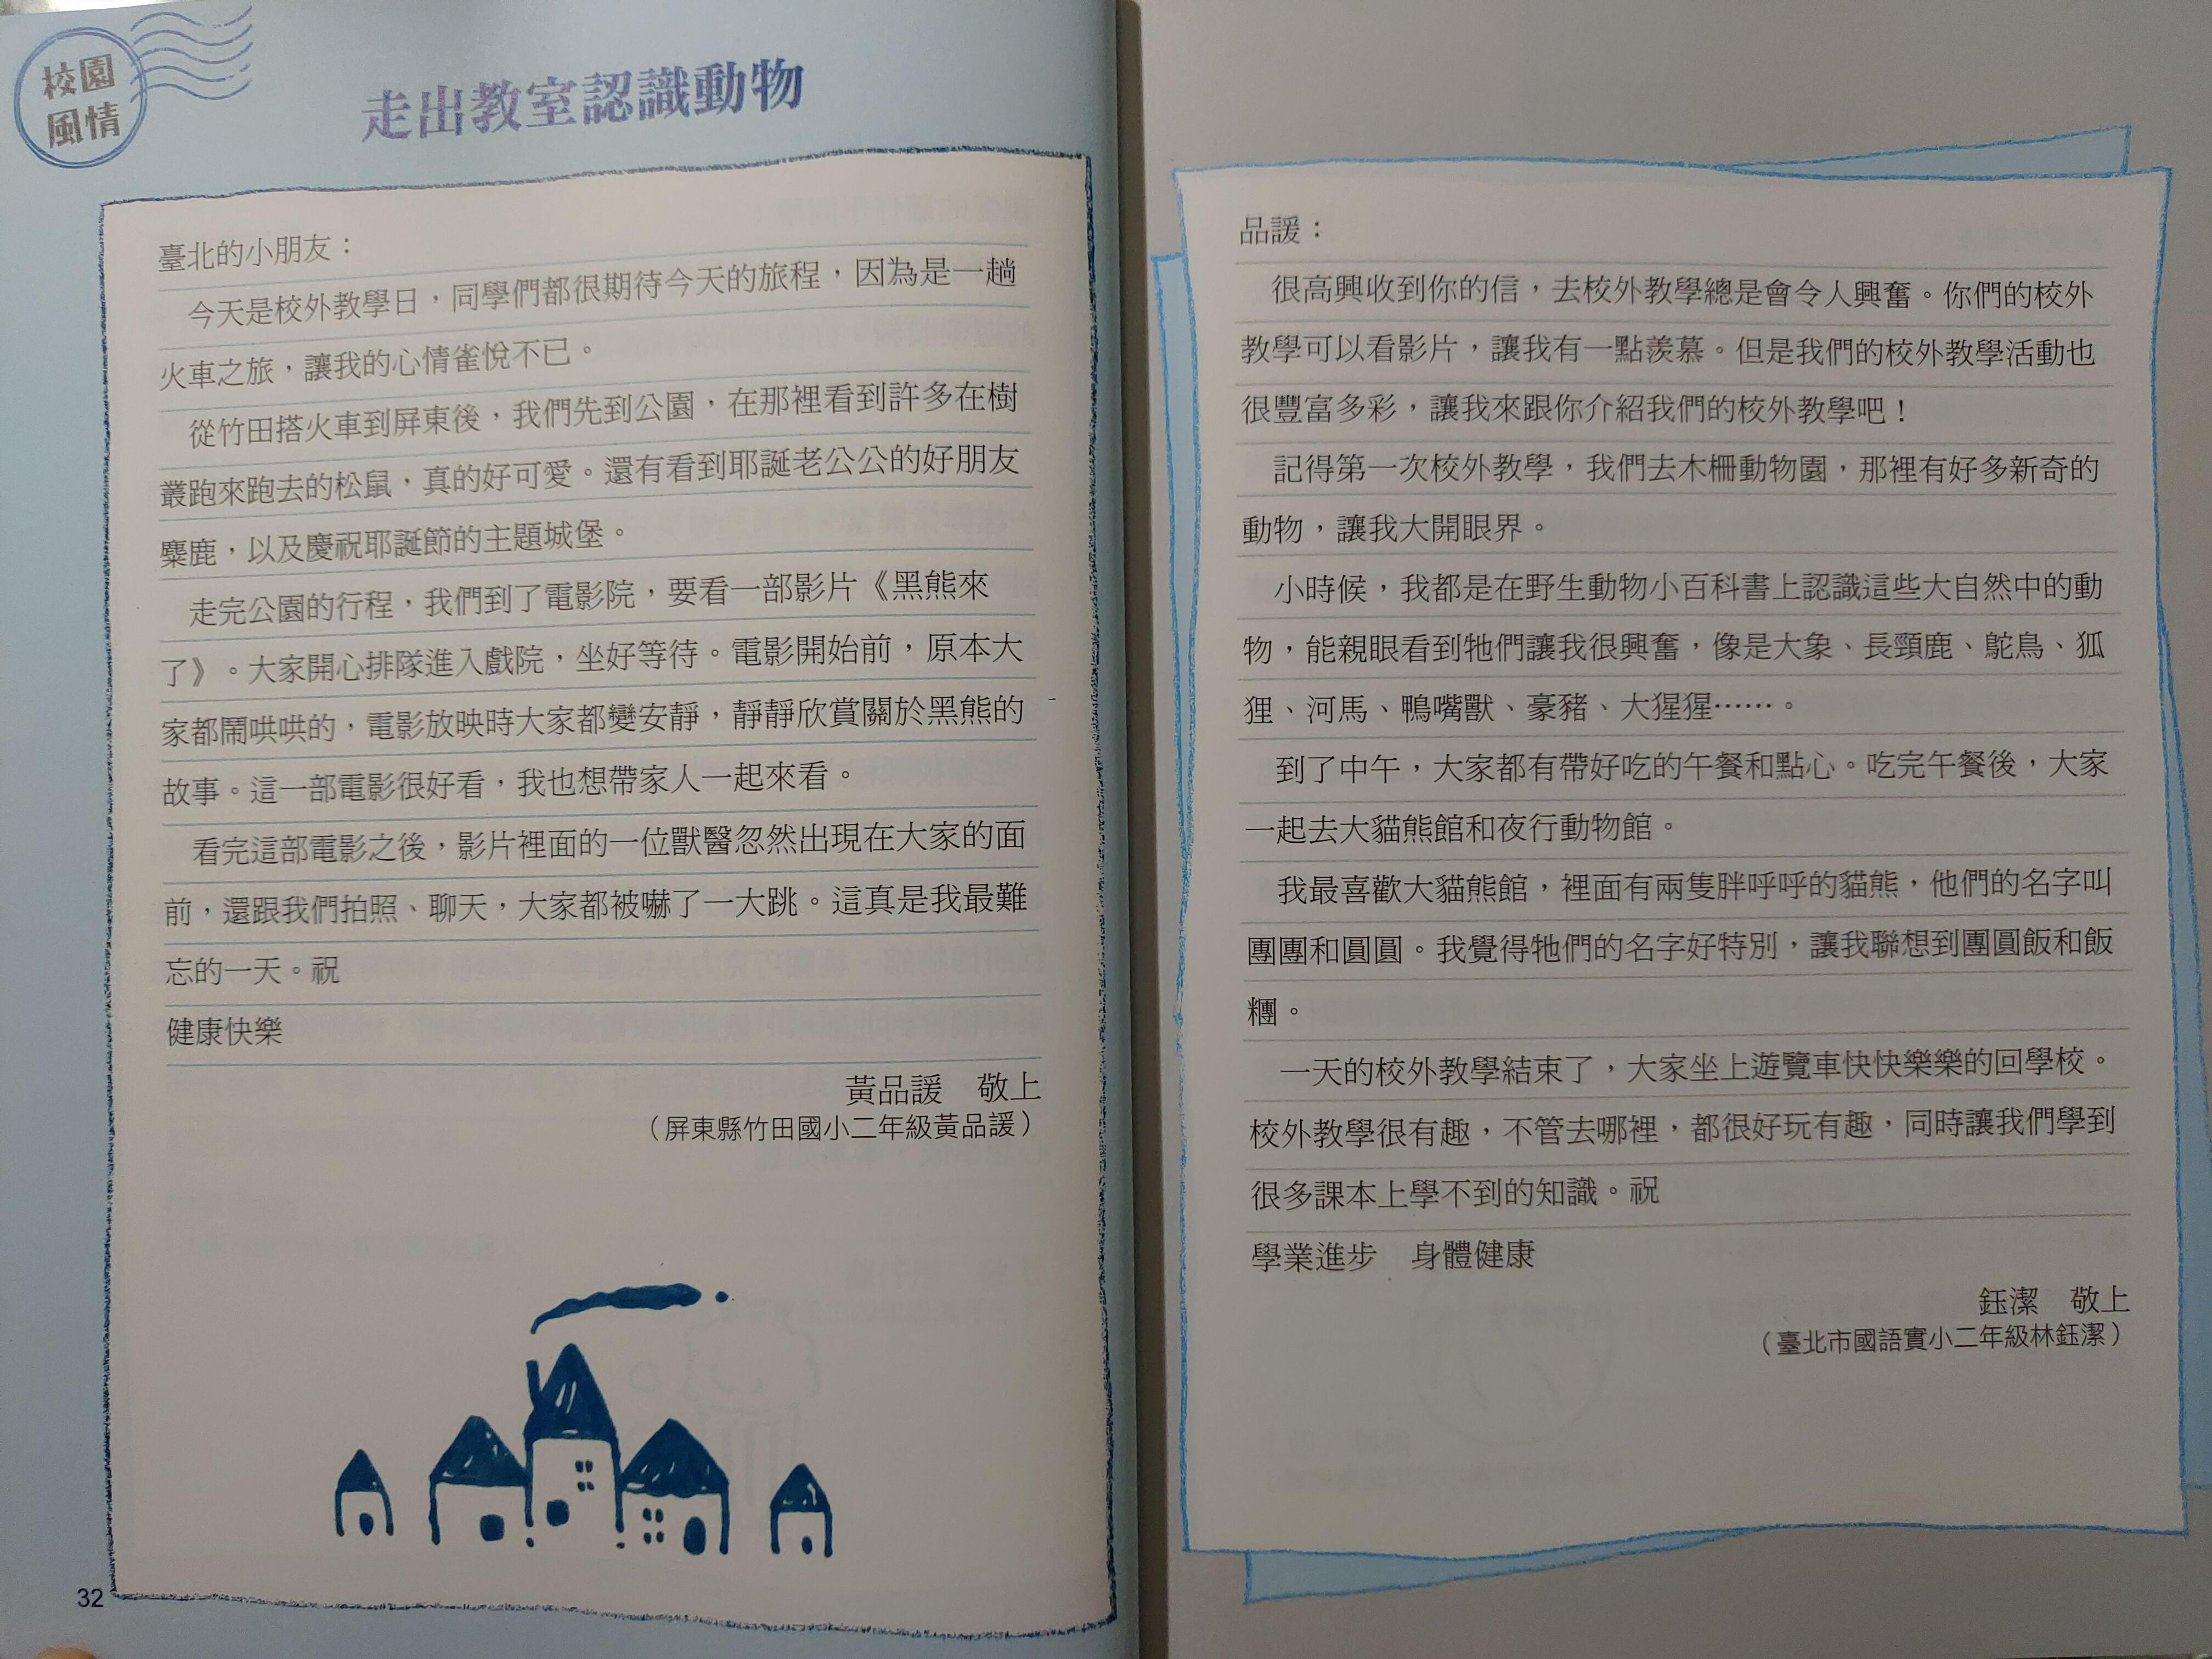 校園
風情
走出教室認識動物
臺北的小朋友：
今天是校外教學日，同學們都很期待今天的旅程，因為是一趟
火車之旅，讓我的心情雀悅不已。
從竹田搭火車到屏東後，我們先到公園，在那裡看到許多在樹
叢跑來跑去的松鼠，真的好可愛。還有看到耶誕老公公的好朋友
麋鹿，以及慶祝耶誕節的主題城堡。
走完公園的行程，我們到了電影院，要看一部影片《黑熊來
了》。大家開心排隊進入戲院，坐好等待。電影開始前，原本大
家都鬧哄哄的，電影放映時大家都變安靜，靜靜欣賞關於黑熊的
故事。這一部電影很好看，我也想帶家人一起來看。
看完這部電影之後，影片裡面的一位獸醫忽然出現在大家的面
前，還跟我們拍照、聊天，大家都被嚇了一大跳。這真是我最難
忘的一天。祝
健康快樂
黃品諼　敬上
（屏東縣竹田國小二年級黃品諼）
32
品諼：
很高興收到你的信，去校外教學總是會令人興奮。你們的校外
教學可以看影片，讓我有一點羨慕。但是我們的校外教學活動也
很豐富多彩，讓我來跟你介紹我們的校外教學吧！
記得第一次校外教學，我們去木柵動物園，那裡有好多新奇的
動物，讓我大開眼界。
小時候，我都是在野生動物小百科書上認識這些大自然中的動
物，能親眼看到牠們讓我很興奮，像是大象、長頸鹿、鴕鳥、狐
狸、河馬、鴨嘴獸、豪豬、大猩猩……。
到了中午，大家都有帶好吃的午餐和點心。吃完午餐後，大家
一起去大貓熊館和夜行動物館。
我最喜歡大貓熊館，裡面有兩隻胖呼呼的貓熊，他們的名字叫
團團和圓圓。我覺得牠們的名字好特別，讓我聯想到團圓飯和飯
糰。
一天的校外教學結束了，大家坐上遊覽車快快樂樂的回學校。
校外教學很有趣，不管去哪裡，都很好玩有趣，同時讓我們學到
很多課本上學不到的知識。祝
學業進步　身體健康
鈺潔　敬上
（臺北市國語實小二年級林鈺潔）